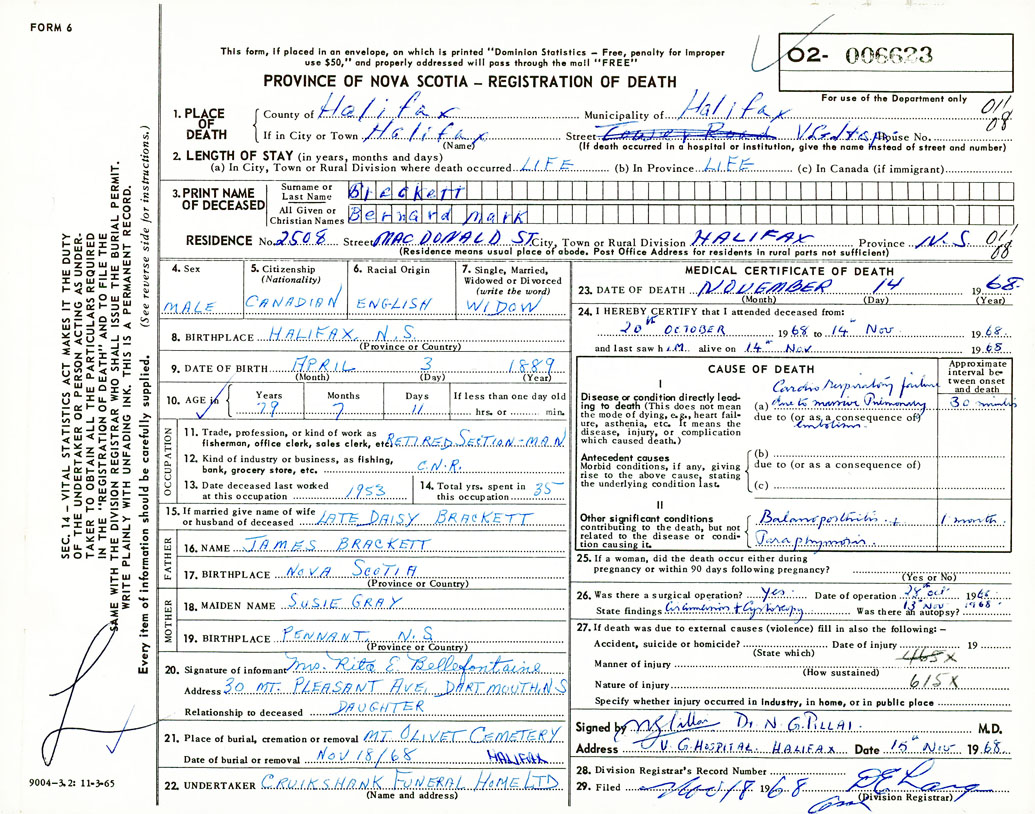 FORM 6
This form, if placed in an envelope, on which is printed "Dominion Statistics – Free, penalty for improper
use $50," and properly addressed will pass through the mail "FREE"
PROVINCE OF NOVA SCOTIA – REGISTRATION OF DEATH
O2- 006623
For use of the Department only
011
08
1. PLACE OF DEATH
County of Halifax Municipality of Halifax
If in City or Town Halifax Street Tower Road House No.
(Name) (If death occurred in a hospital or institution, give the name instead of street and number)
2. LENGTH OF STAY (in years, months and days)
(a) In City, Town or Rural Division where death occurred LIFE (b) In Province LIFE (c) In Canada (if immigrant)
3. PRINT NAME OF DECEASED
Surname or Last Name Brackett
All Given or Christian Names Bernard Mark
RESIDENCE No. 2508 Street MACDONALD ST. City, Town or Rural Division HALIFAX Province N.S 011
08
(Residence means usual place of abode. Post Office Address for residents in rural parts not sufficient)
4. Sex
MALE
5. Citizenship
(Nationality)
CANADIAN
6. Racial Origin
ENGLISH
7. Single, Married,
Widowed or Divorced
(write the word)
WIDOW
8. BIRTHPLACE HALIFAX, N.S.
(Province or Country)
9. DATE OF BIRTH APRIL 3 1889
(Month) (Day) (Year)
10. AGE in Years Months Days If less than one day old
79 7 11 hrs. or min.
OCCUPATION
11. Trade, profession, or kind of work as
fisherman, office clerk, sales clerk, etc. RETIRED SECTION-MAN
12. Kind of industry or business, as fishing,
bank, grocery store, etc. C.N.R.
13. Date deceased last worked
at this occupation 1953
14. Total yrs. spent in
this occupation 35
15. If married give name of wife
or husband of deceased LATE DAISY BRACKETT
FATHER
16. NAME JAMES BRACKETT
17. BIRTHPLACE NOVA SCOTIA
(Province or Country)
MOTHER
18. MAIDEN NAME SUSIE GRAY
19. BIRTHPLACE PENNANT, N.S
(Province or Country)
20. Signature of informant Mrs. Rita E. Bellefontaine
Address 30 MT. PLEASANT AVE, DARTMOUTH N S
Relationship to deceased DAUGHTER
21. Place of burial, cremation or removal MT OLIVET CEMETERY
Date of burial or removal NOV 18/68 HALIFAX
22. UNDERTAKER CRUIKSHANK FUNERAL HOME LTD
(Name and address)
MEDICAL CERTIFICATE OF DEATH
23. DATE OF DEATH NOVEMBER 14 1968
(Month) (Day) (Year)
24. I HEREBY CERTIFY that I attended deceased from:
20th OCTOBER 1968 to 14th Nov. 1968
and last saw him alive on 14th Nov. 1968
CAUSE OF DEATH
Approximate interval between onset and death
I
Disease or condition directly leading to death (This does not mean the mode of dying, e.g., heart failure, asthenia, etc. It means the disease, injury, or complication which caused death.)
Cardio Respiratory failure
(a) due to massive Pulmonary 30 minutes
due to (or as a consequence of)
embolism
Antecedent causes
Morbid conditions, if any, giving rise to the above cause, stating the underlying condition last.
(b)
due to (or as a consequence of)
(c)
II
Other significant conditions
contributing to the death, but not related to the disease or condition causing it.
Balanoposthitis + 1 month
Paraphymosis
25. If a woman, did the death occur either during
pregnancy or within 90 days following pregnancy?
(Yes or No)
26. Was there a surgical operation? Yes. Date of operation 28th Oct 1968
13th Nov 1968
State findings Circumcision + Cystoscopy Was there an autopsy?
27. If death was due to external causes (violence) fill in also the following: –
Accident, suicide or homicide? Date of injury 19
(State which) 465X
Manner of injury
(How sustained)
Nature of injury 615X
Specify whether injury occurred in Industry, in home, or in public place
Signed by Dr. N. G. PILLAI. M.D.
Address V. G. HOSPITAL. HALIFAX Date 15th Nov. 1968
28. Division Registrar's Record Number
29. Filed 18 1968
(Division Registrar)
SEC. 14 – VITAL STATISTICS ACT MAKES IT THE DUTY
OF THE UNDERTAKER OR PERSON ACTING AS UNDER-
TAKER TO OBTAIN ALL THE PARTICULARS REQUIRED
IN THE "REGISTRATION OF DEATH" AND TO FILE THE
SAME WITH THE DIVISION REGISTRAR WHO SHALL ISSUE THE BURIAL PERMIT.
WRITE PLAINLY WITH UNFADING INK. THIS IS A PERMANENT RECORD.
Every item of information should be carefully supplied. (See reverse side for instructions.)
9004–3.2: 11-3-65